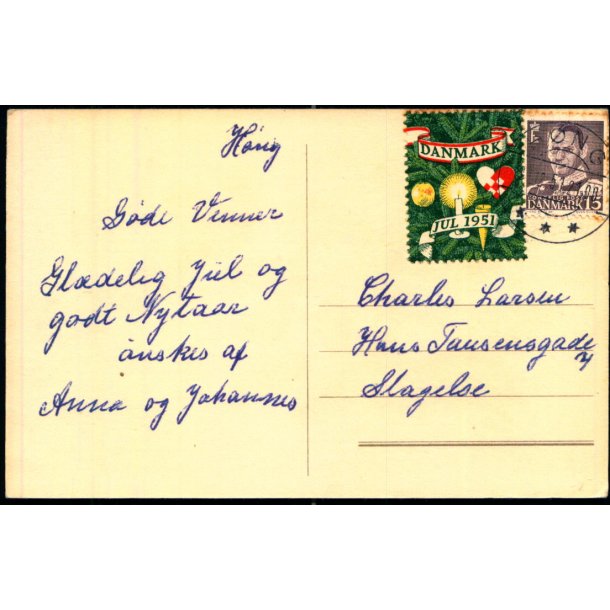 Höng
Gode Venner
Glædelig Jul og
godt Nytaar
ønskes af
Anna og Johannes
DANMARK
JUL 1951
DANMARK 15
Charles Larsen
Hans Tausensgade
Slagelse